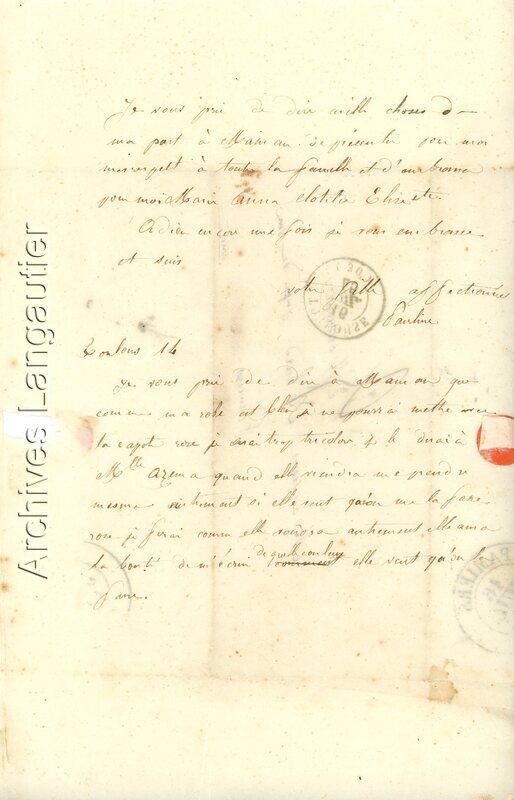 Je vous prie de dire mille choses de
ma part à Maman de présenter pour moi
mes respects à toute la famille et d'embrasser
pour moi Marie Anna Clotilde Elise etc.
Adieu encore une fois je vous embrasse
et suis
votre fille affectionnée
Pauline
Toulouse 14
Je vous prie de dire à Maman que
comme ma robe est bleu je ne pourrai mettre avec
la capote rose je serai trop tricolore je le dirai à
Mlle Azema quand elle viendra me prendre
mesure autrement si elle veut qu'on me la fasse
rose je ferai comme elle voudra autrement elle aura
la bonté de m'écrire de quelle couleur comment elle veut qu'on la
fasse.
Archives Langautier